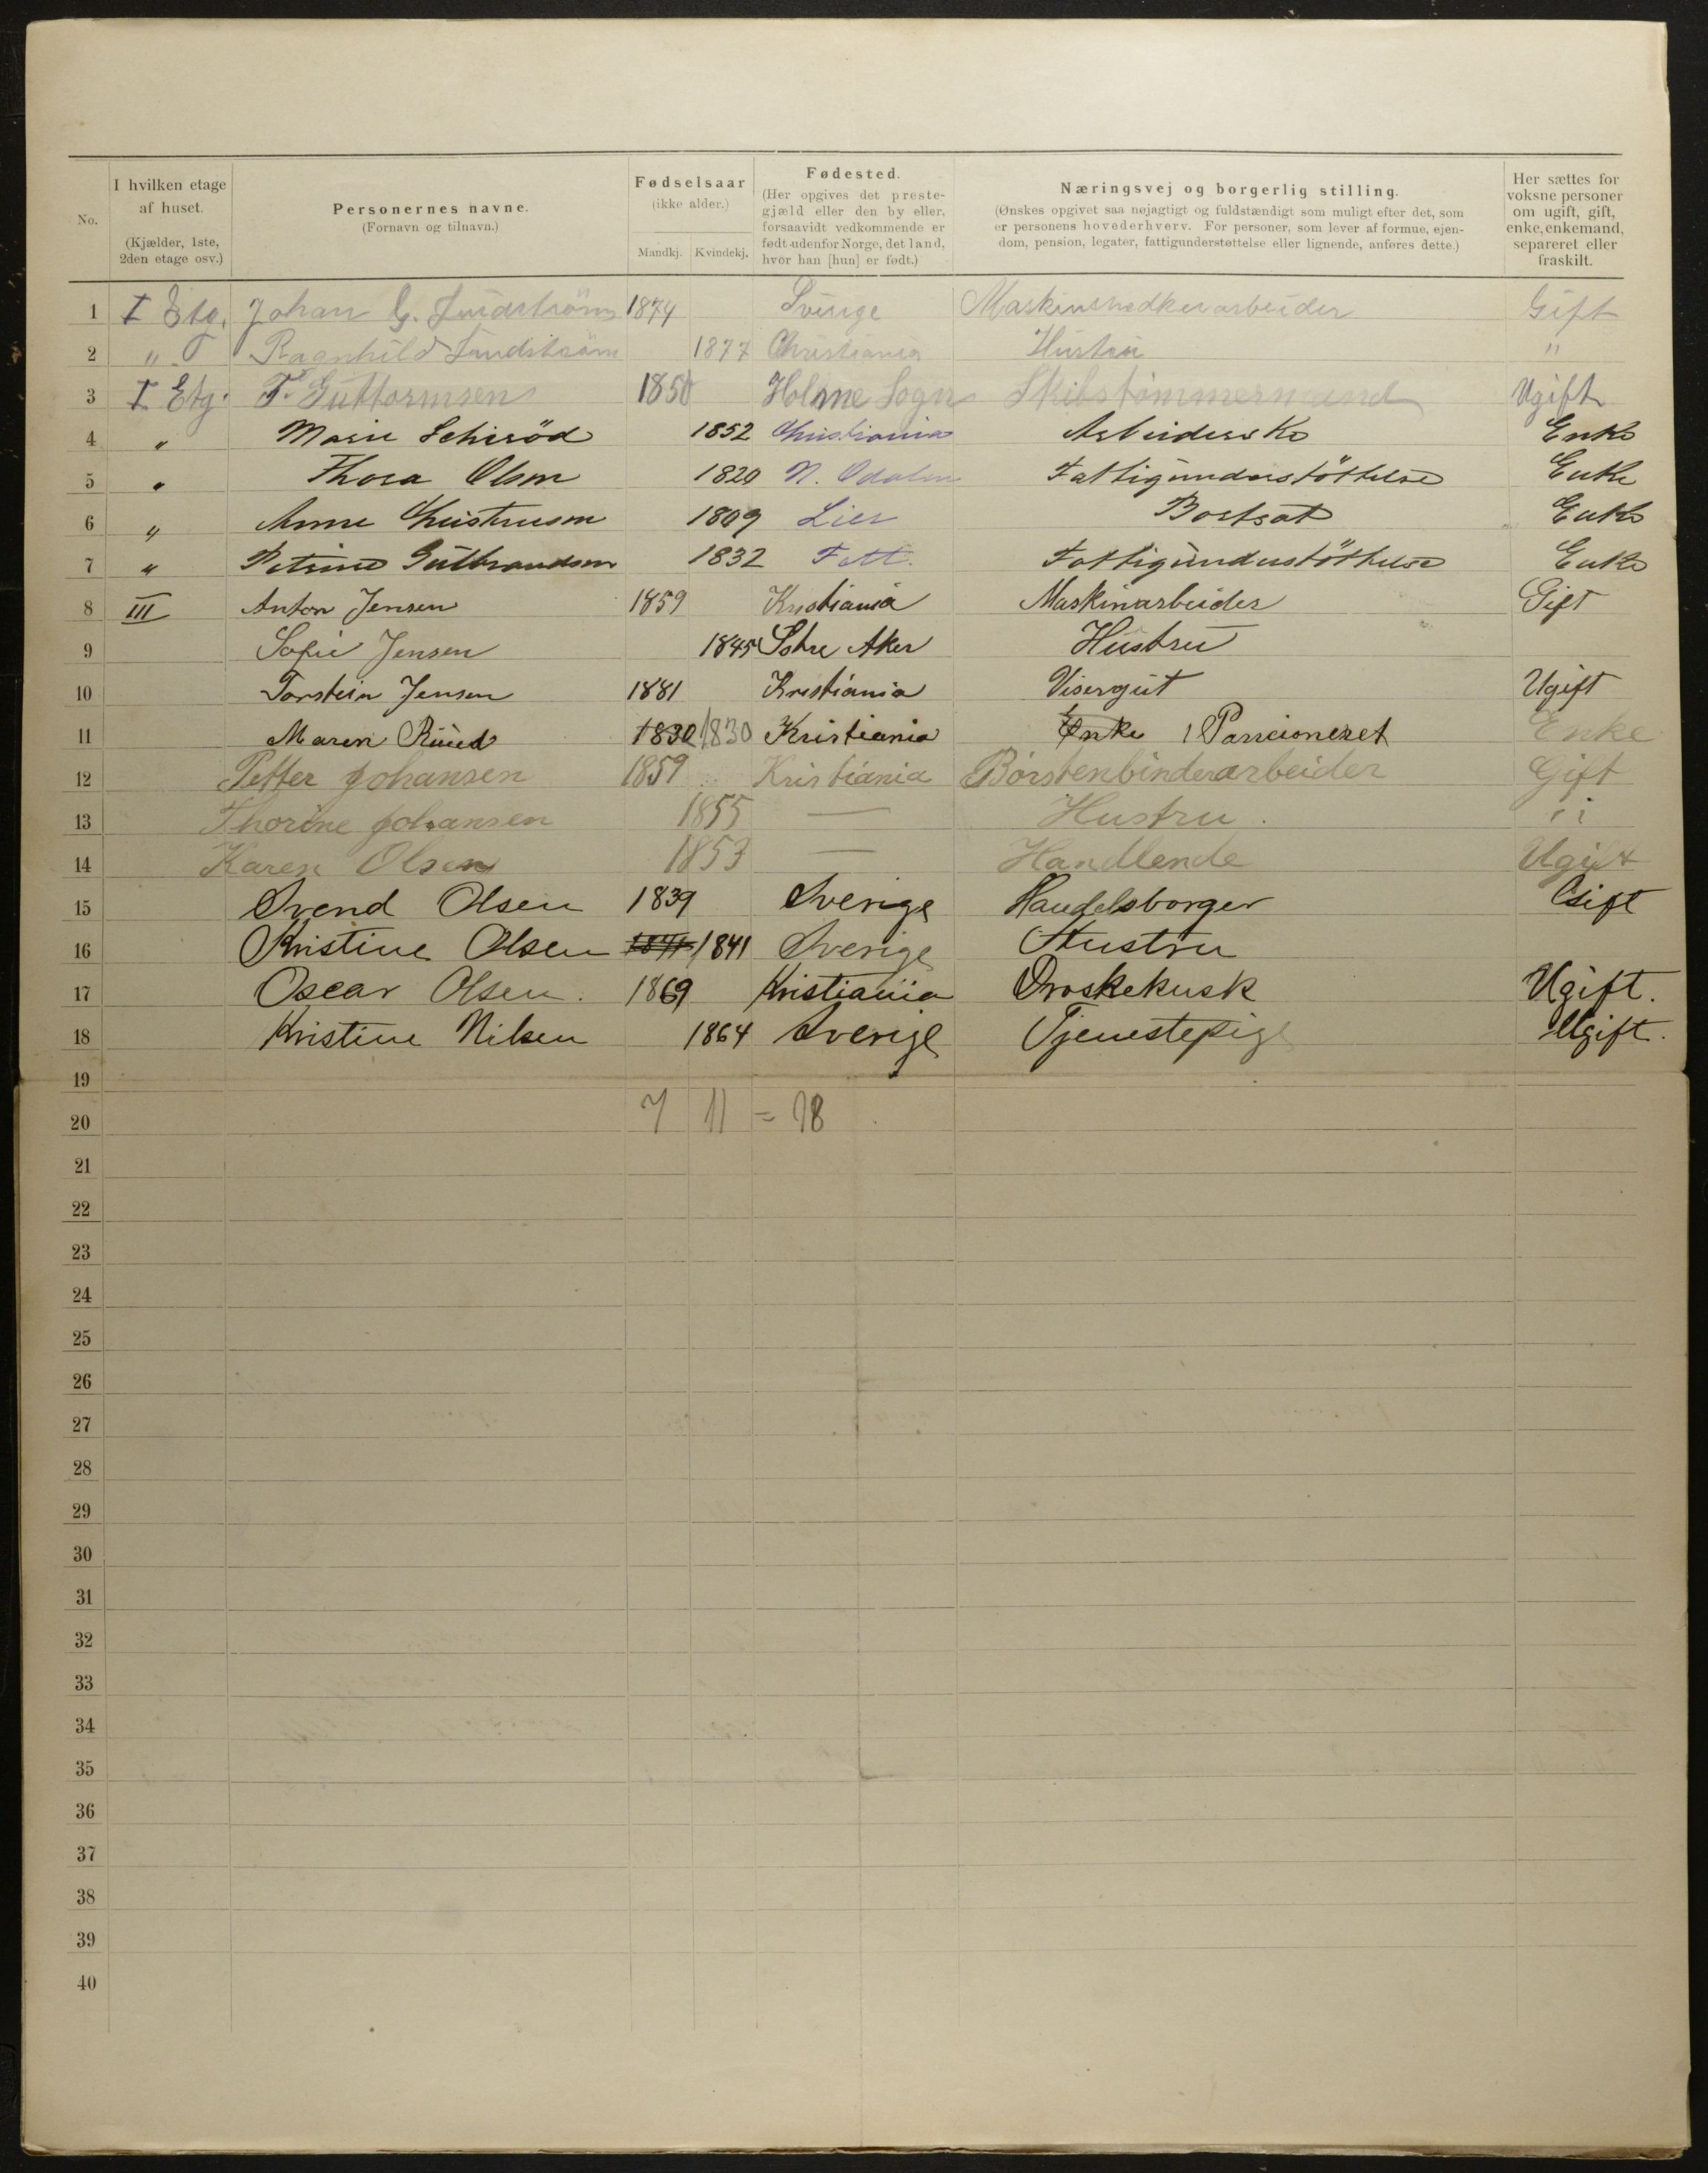 No.
I hvilken etage af huset. (Kjælder, 1ste, 2den etage osv.)
Personernes navne. (Fornavn og tilnavn.)
Fødselsaar (ikke alder.) Mandkj. Kvindekj.
Fødested. (Her opgives det prestegjæld eller den by eller, forsaavidt vedkommende er født udenfor Norge, det land, hvor han [hun] er født.)
Næringsvej og borgerlig stilling. (Ønskes opgivet saa nøjagtigt og fuldstændigt som muligt efter det, som er personens hovederhverv. For personer, som lever af formue, ejendom, pension, legater, fattigunderstøttelse eller lignende, anføres dette.)
Her sættes for voksne personer om ugift, gift, enke, enkemand, separeret eller fraskilt.
1 I Etg. Johan G. Lundström 1874 Sverige Gift
2 " Ragnhild Lundström 1877 Christiania Hustru "
3 I Etg. T. Guttormsen 1850 Holme Sogn Skibstømmermand Ugift
4 " Marie 1852 Christiania Enke
5 " Thora Olsen 1820 N. Odalen Fattigunderstöttelse Enke
6 " Anne Christensen 1809 Lier Bortsat Enke
7 " Petrine Gulbrandsen 1832 Fett. Fattigunderstöttelse Enke
8 III Anton Jensen 1859 Kristiania Maskinarbeider Gift
9 Sofie Jensen 1845 Aker Hustru
10 Torstein Jensen 1881 Kristiania Visergut Ugift
11 Maren Ruud 1830 1830 Kristiania Enke Pancioneret Enke
12 Petter Johansen 1859 Kristiania Börstenbinderarbeider Gift
13 Thorine Johansen 1855 — Hustru. "
14 Karen Olsen 1853 — Handlende Ugift
15 Svend Olsen 1839 Sverige Handelsborger Gift
16 Kristine Olsen 1841 1841 Sverige Hustru
17 Oscar Olsen. 1869 Kristiania Droskekusk Ugift.
18 Kristine Nilsen 1864 Sverige Tjenestepige Ugift.
19
20 7 11 = 18
21
22
23
24
25
26
27
28
29
30
31
32
33
34
35
36
37
38
39
40